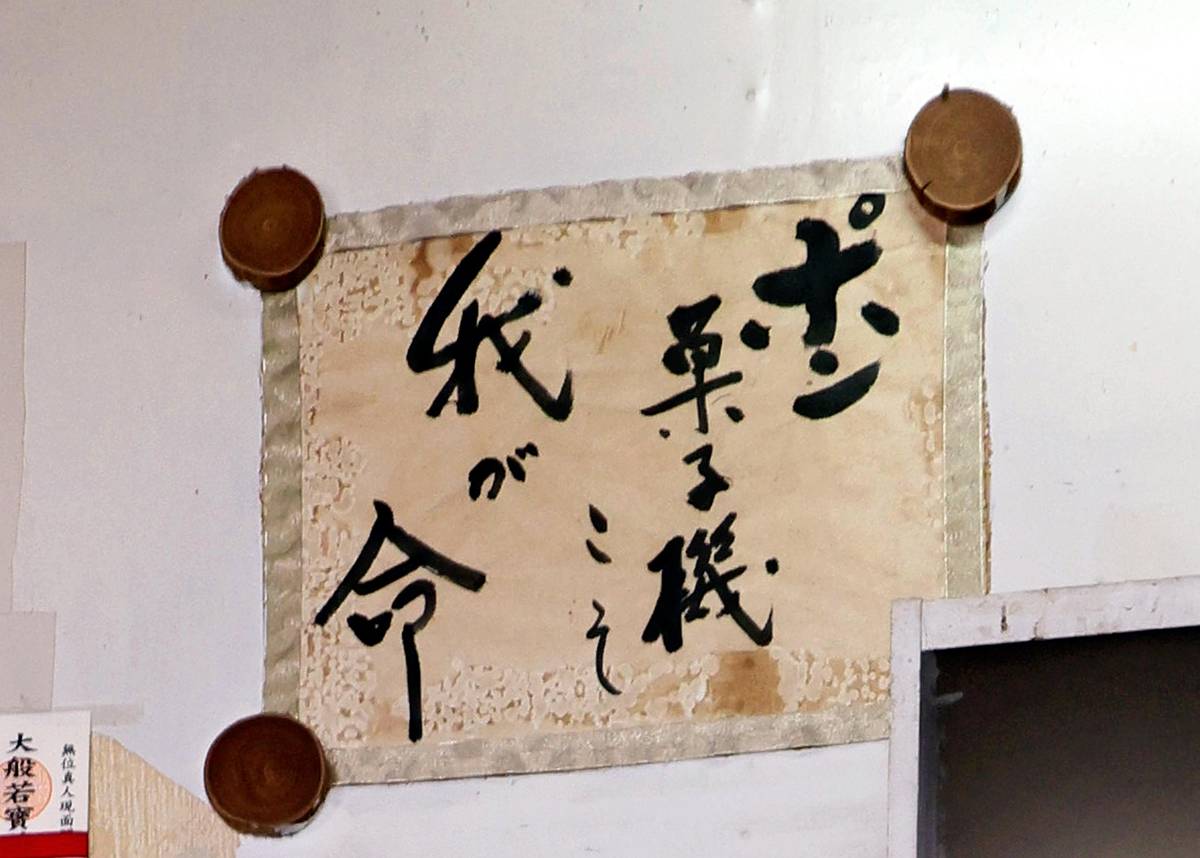 ポン
菓子機
こそ
我が命
無位真人現面
大般若寶